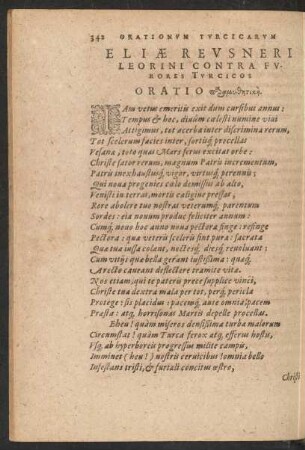 342 ORATIONVM TVRCICARVM
ELIÆ REVSNERI
LEORINI CONTRA FV-
RORES TVRCICOS
ORATIO
IAm vetus emeritis exit dum cursibus annus:
Tempus & hoc, diuûm cælesti numine viui
Attigimus, tot acerba inter discrimina rerum,
Tot scelerum facies inter, fortisq́; procellas
Vesana, toto quas Mars ferus excitat orbe:
Christe sator rerum, magnum Patris incrementum,
Patris inexhaustusq́; vigor, virtusq́; perennis;
Qui noua progenies cælo demissus ab alto,
Venisti in terras, mersis caligine pressas,
Rere abolere tuo nostras veterumq́; parentum
Sordes: eia nouum produc feliciter annum:
Cumq́; nouo hoc anno noua pectora finge: refinge
Pectora: qua veteris sceleris sint pura: sacrata
Qua tua iussa colant, nectereq́; dresq́; reuoluant:
Cum vitijs qua bella gerant iustissima: quaq́;
Arrecto caueant deflectere tramite vita.
Nos etiam, qui te pateris prece supplice vinci,
Christe tua dextra mala per tot, perq́; pericla
Protege: sis placidus: pacemq́; aute omnia pacem
Præsta: atq́; horrisonas Martis depelle procellas.
Eheu! quàm miseros densissima turba malorum
Circumstat! quàm Turca ferox atq́; efferus hostis,
Vsq́; ab hyperboreis progressus milite campis,
Imminet (heu!) nostris ceruicibus! omnia bello
Infestans tristi, & furiali concitus œstro,
Christi